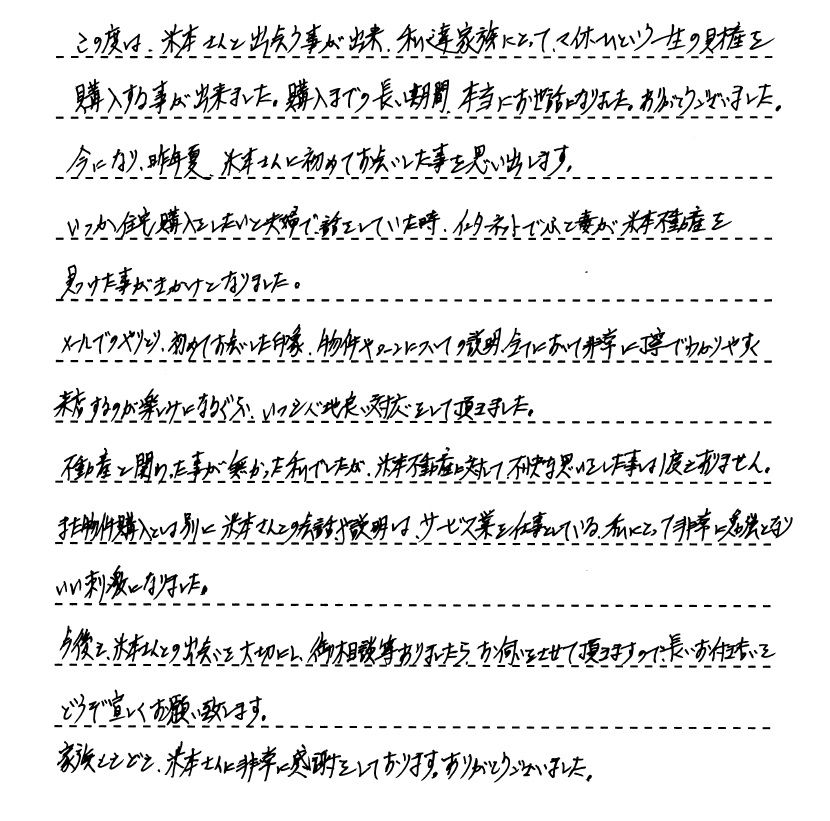 この度は、米本さんと出会う事が出来、私達家族にとって、マイホームという一生の財産を
購入する事が出来ました。購入までの長い期間、本当にお世話になりました。ありがとうございました。
今になり、昨年夏、米本さんに初めてお会いした事を思い出します。
いつか住宅購入をしたいと夫婦で話をしていた時、インターネットでふと妻が米本不動産を
見つけた事がきっかけとなりました。
メールでのやりとり、初めてお会いした印象、物件やローンについての説明、全てにおいて非常に丁寧でわかりやすく
来店するのが楽しみになるぐらい、いつも心地良い対応をして頂きました。
不動産と関わった事が無かった私でしたが、米本不動産に対して不快な思いをした事は1度もありません。
また物件購入とは別に米本さんとの会話や説明は、サービス業を仕事としている、私にとって非常に勉強となり
いい刺激になりました。
今後も、米本さんとの出会いを大切にし、御相談等ありましたら、お伺いをさせて頂きますので、長いお付き合いを
どうぞ宜しくお願い致します。
家族ともども、米本さんに非常に感謝をしております。ありがとうございました。